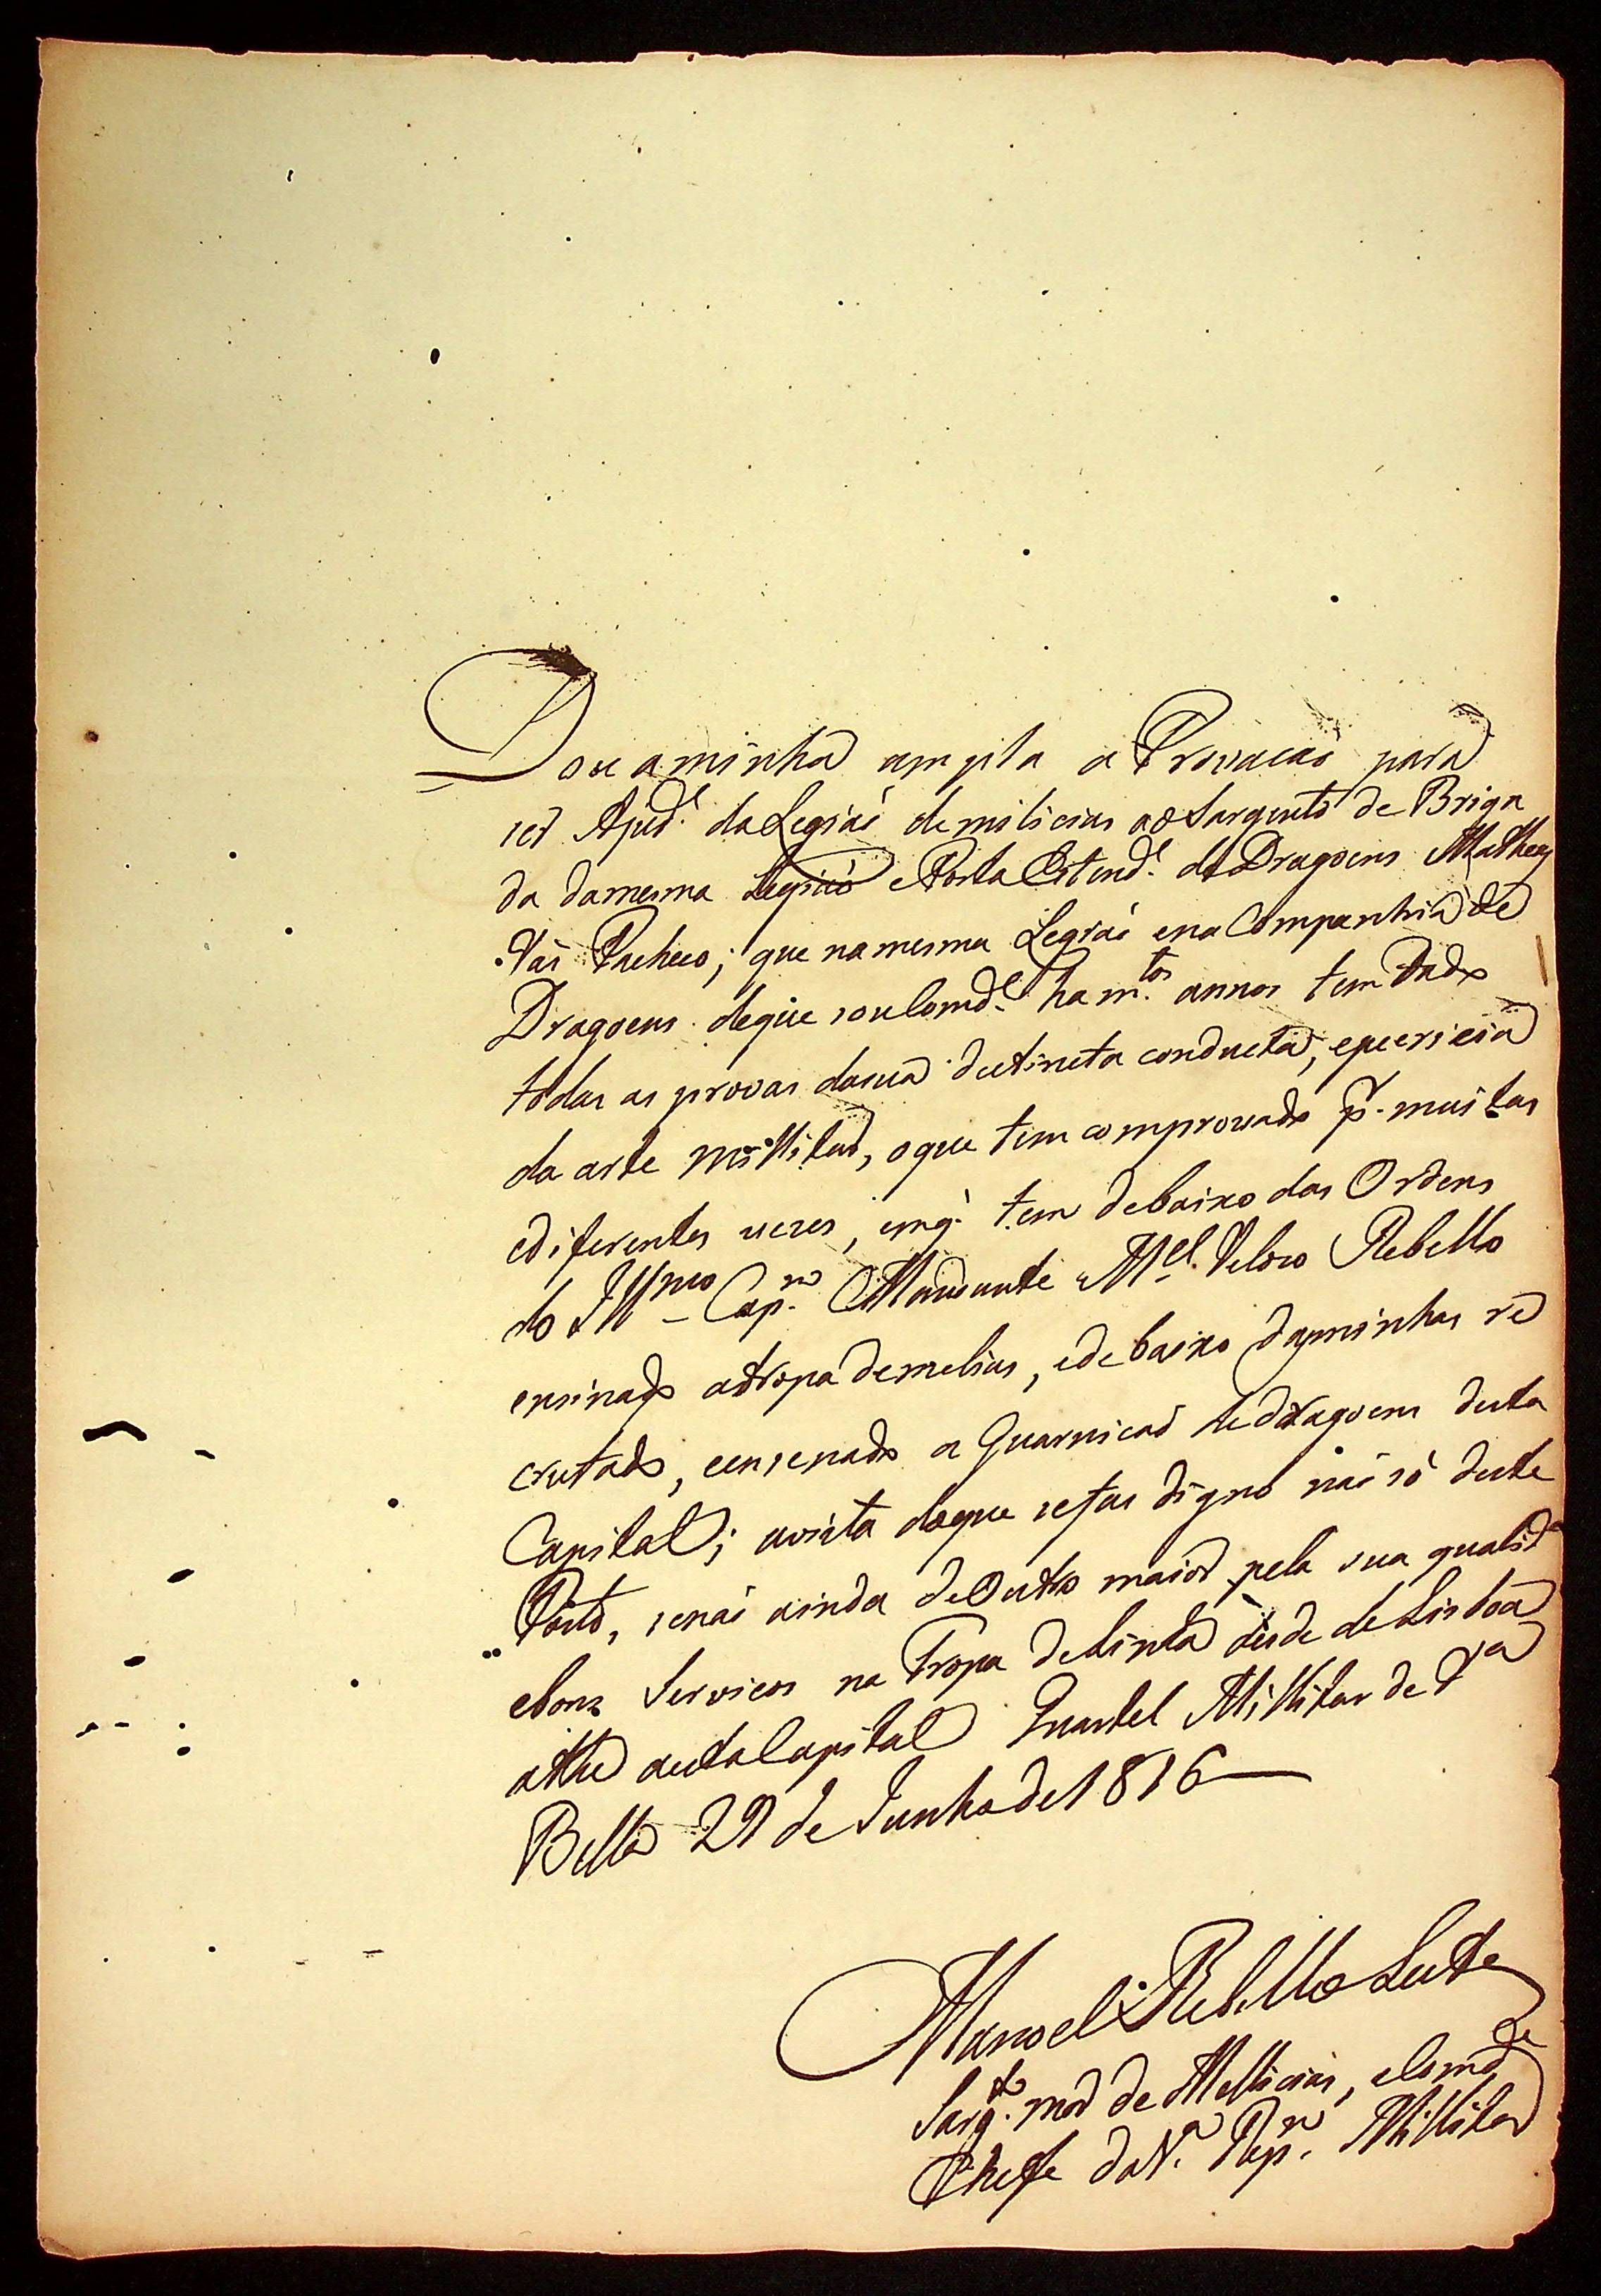 Dou aminha ampla aProvacaõ para
ser Ajud.e daLegiaõ demilicias aoSargento de Briga
da damesma Legiaõ ePorta Estend.e deDragoens Matheus
Vas Pacheco; que namesma Legiaõ ena Companhia de
Dragoens dequesouComd.e ha m.tos annos tem dado
todas as provas dasua destincta conducta, epericia
da arte Millitar, oque temcomprovado p.r muitas
ediferentes vezes, emq̀. tem debaixo das Ordens
do Ill.mo Cap.m Mandante M.el Veloso Rebello
ensinado atropa demelisias, edebaixo dasminhas re
crutado, eensenado a Guarnicaõ deDragoens desta
Capital; avista doque sefas digno naõ só deste
Posto, senaõ ainda deOutro maior pela sua qualid.e
ebons Servicos na Tropa deLinha desde deLisboa
athe aestaCapital Quartel Millitar de V.a
Bella 29 de Junho de1816
Manoel Rebello Leite
Sarg.to mor de Mellicias, eComd.e
Chefe daN.a Rep.m Millitar